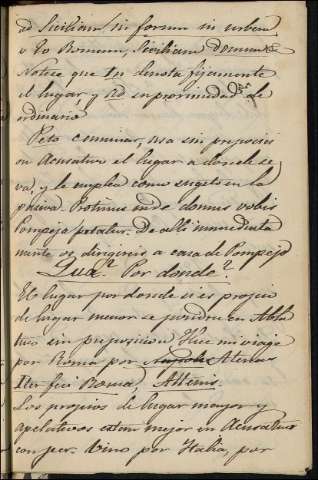 ad Siciliam, in forum in urbem
o to Romam, Siciliam
Notese que in denota fijamente
el lugar, y ad su proximidad de
ordinario.
Peto caminar, usa sin preposici
on Acusativo el lugar a donde se
va, y le emplea como sugeto en la
pasiva. Protinus inde domus vobis
Pompeja petatur. De alli inmediata
mente os dirigireis a casa de Pompejo
Por donde?
El lugar por donde si es propio
de lugar menor se pondra en Abla
tivo sin preposicion. Hice mi viage
por Roma por Atenas
Iter feci Roma, Athenis.
Los propios de lugar mayor y
apelativos estan mejor en Acusativo
con per. Vino por Italia, por